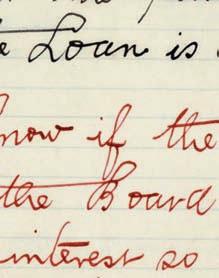 Loan is
now if the
the Board
interest so